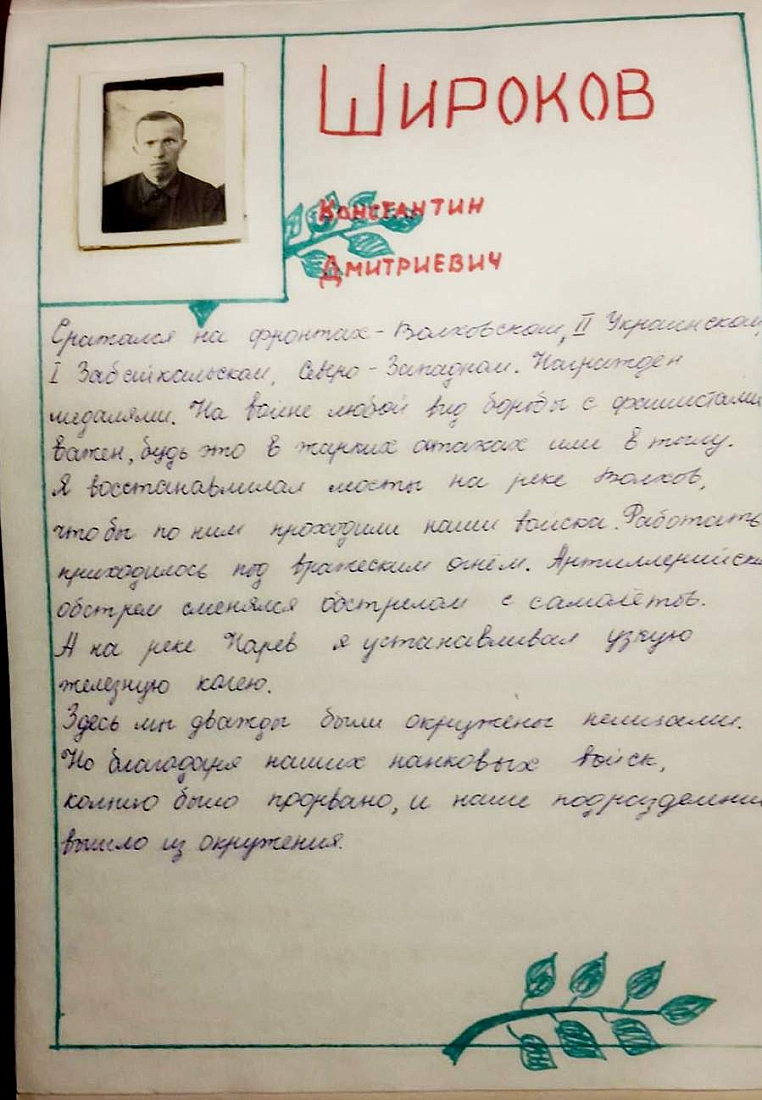 Широков
Константин
Дмитриевич
Сражался на фронтах - Волховском, II Украинском,
I Забайкальском, Северо - Западном. Награждён
медалями. На войне любой вид борьбы с фашистами
важен, будь это в жарких атаках или в тылу.
Я восстанавливал мосты на реке Волхов,
чтобы по ним проходили наши войска. Работать
приходилось под вражеским огнём. Артиллерийск
обстрел сменялся обстрелом с самолётов.
А на реке Нарев я устанавливал узкую
железную колею.
Здесь мы дважды были окружены немцами.
Но благодаря наших танковых войск,
кольцо было прорвано, и наше подразделени
вышло из окружения.